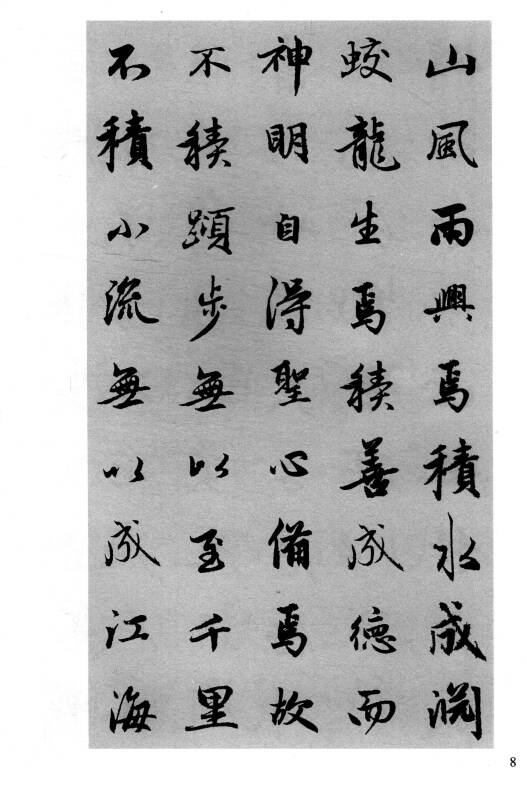 山風雨興焉積水成淵
蛟龍生焉積善成德而
神明自得聖心備焉故
不積蹞步無以至千里
不積小流無以成江海
8